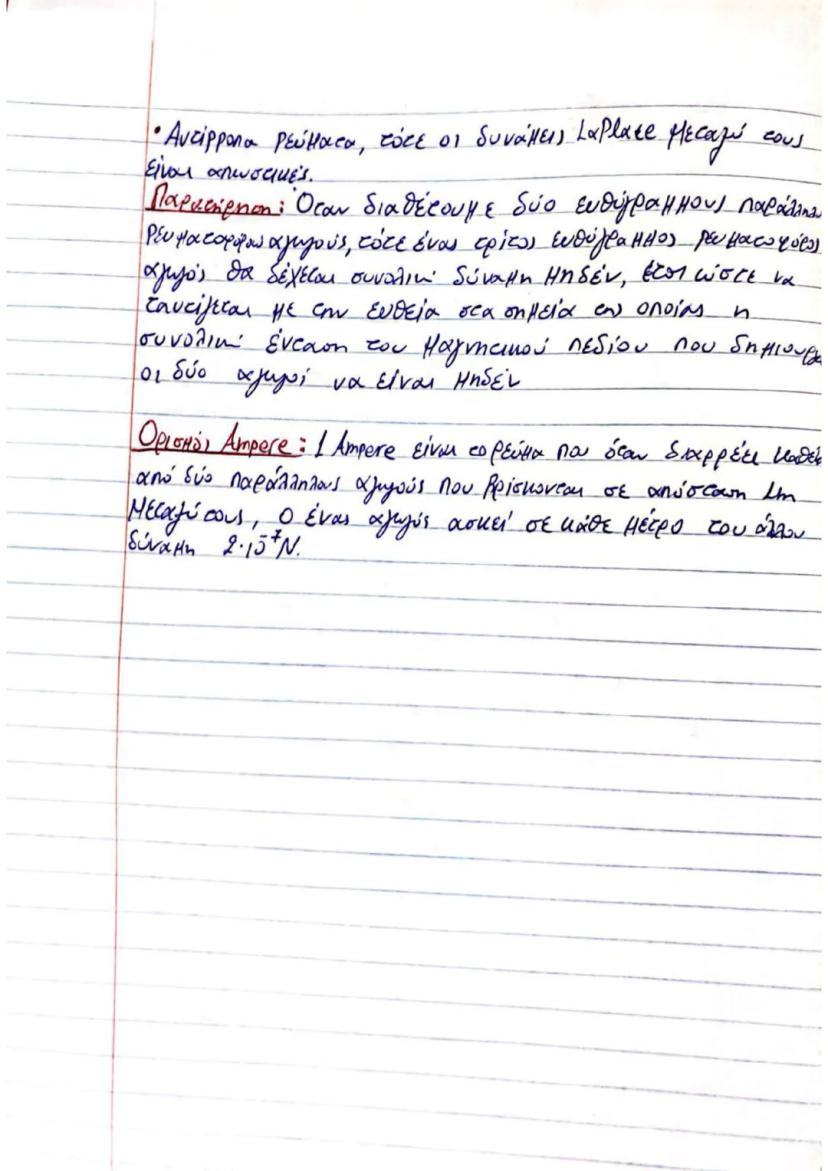 • Αντίρροπα ρεύματα, τότε οι δυνάμεις LaPlace μεταξύ τους
είναι απωστικές.
Παρατήρηση: Όταν διαθέτουμε δύο ευθύγραμμους παράλληλου
ρευματοφόρου αγωγούς, τότε ένας τρίτος ευθύγραμμος ρευματοφόρος
αγωγός θα δέχεται συνολική δύναμη μηδέν, έτσι ώστε να
ταυτίζεται με την ευθεία στα σημεία της οποίας η
συνολική ένταση του μαγνητικού πεδίου που δημιουργού
οι δύο αγωγοί να είναι μηδέν
Ορισμός Ampere: 1 Ampere είναι το ρεύμα που όταν διαρρέει καθέν
από δύο παράλληλους αγωγούς που βρίσκονται σε απόσταση 1m
μεταξύ τους, ο ένας αγωγός ασκεί σε κάθε μέτρο του άλλου
δύναμη 2·10⁻⁷N.